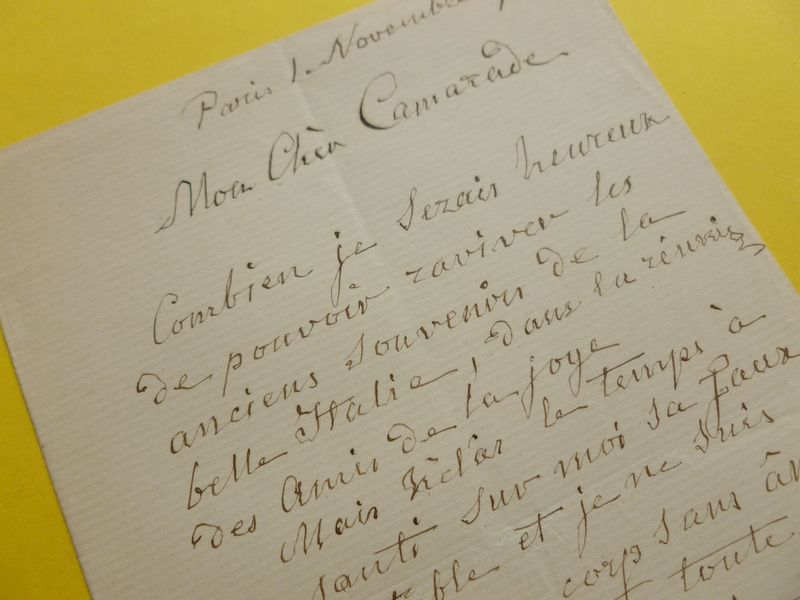 Paris 1. Novembre
Mon Chèr Camarade
Combien je serais heureux
de pouvoir raviver les
anciens souvenirs de la
belle Italie, dans la réunion
des Amis de la joye
Mais hélas le temps à
santi sur moi sa faux
et je ne suis
corps sans
toute